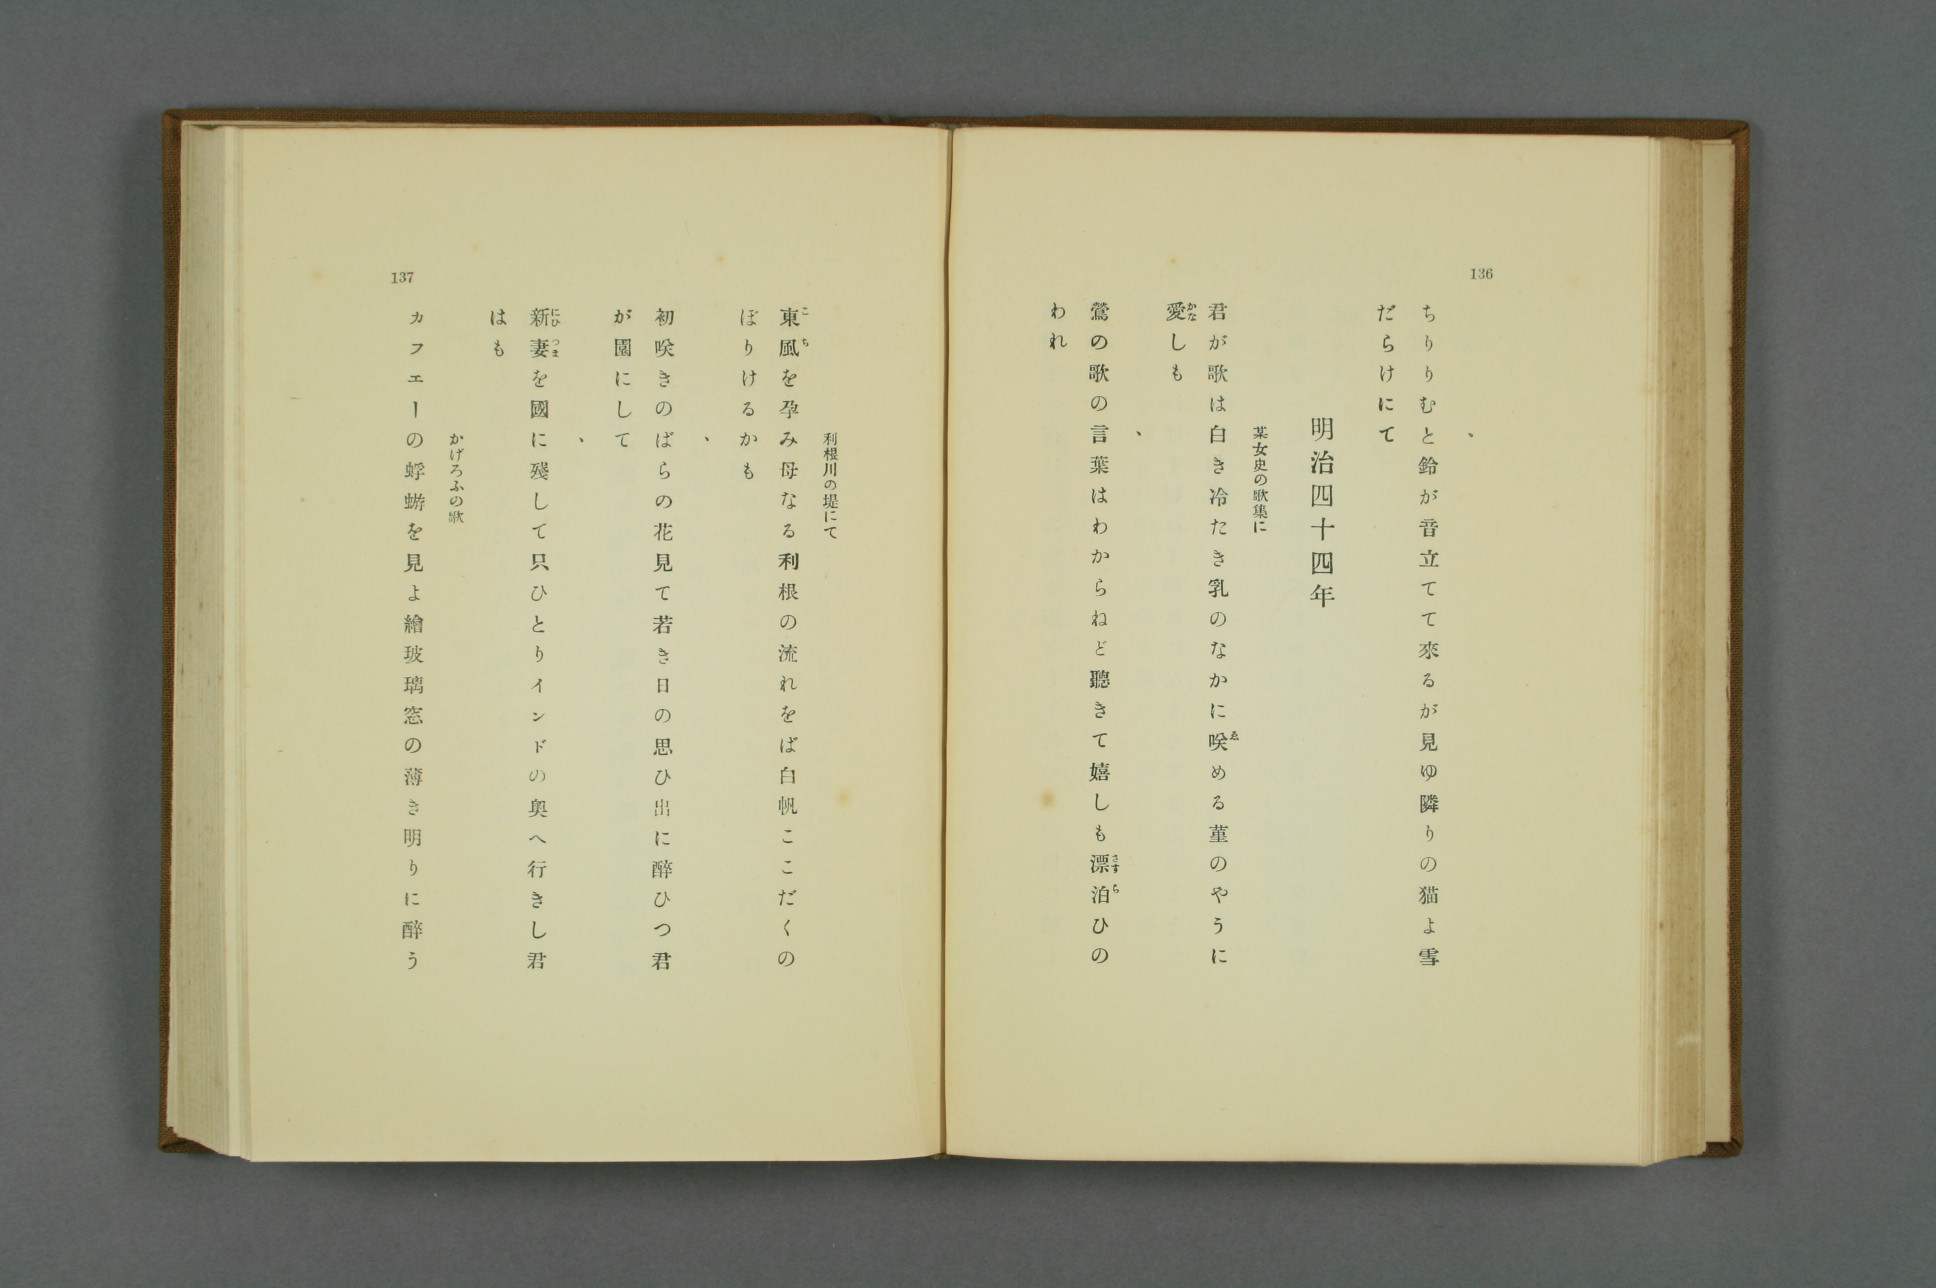 136
、
ちりりむと鈴が音立てて來るが見ゆ隣りの猫よ雪
だらけにて
明治四十四年
某女史の歌集に
君が歌は白き冷たき乳のなかに咲める菫のやうに
愛しも
、
鶯の歌の言葉はわからねど聽きて嬉しも漂泊ひの
われ
利根川の堤にて
東風を孕み母なる利根の流れをば白帆ここだくの
ぼりけるかも
、
初咲きのばらの花見て若き日の思ひ出に醉ひつ君
が園にして
、
新妻を國に殘して只ひとりインドの奥へ行きし君
はも
かげろふの歌
カフエーの蜉蝣を見よ繪玻璃窓の薄き明りに醉う
137